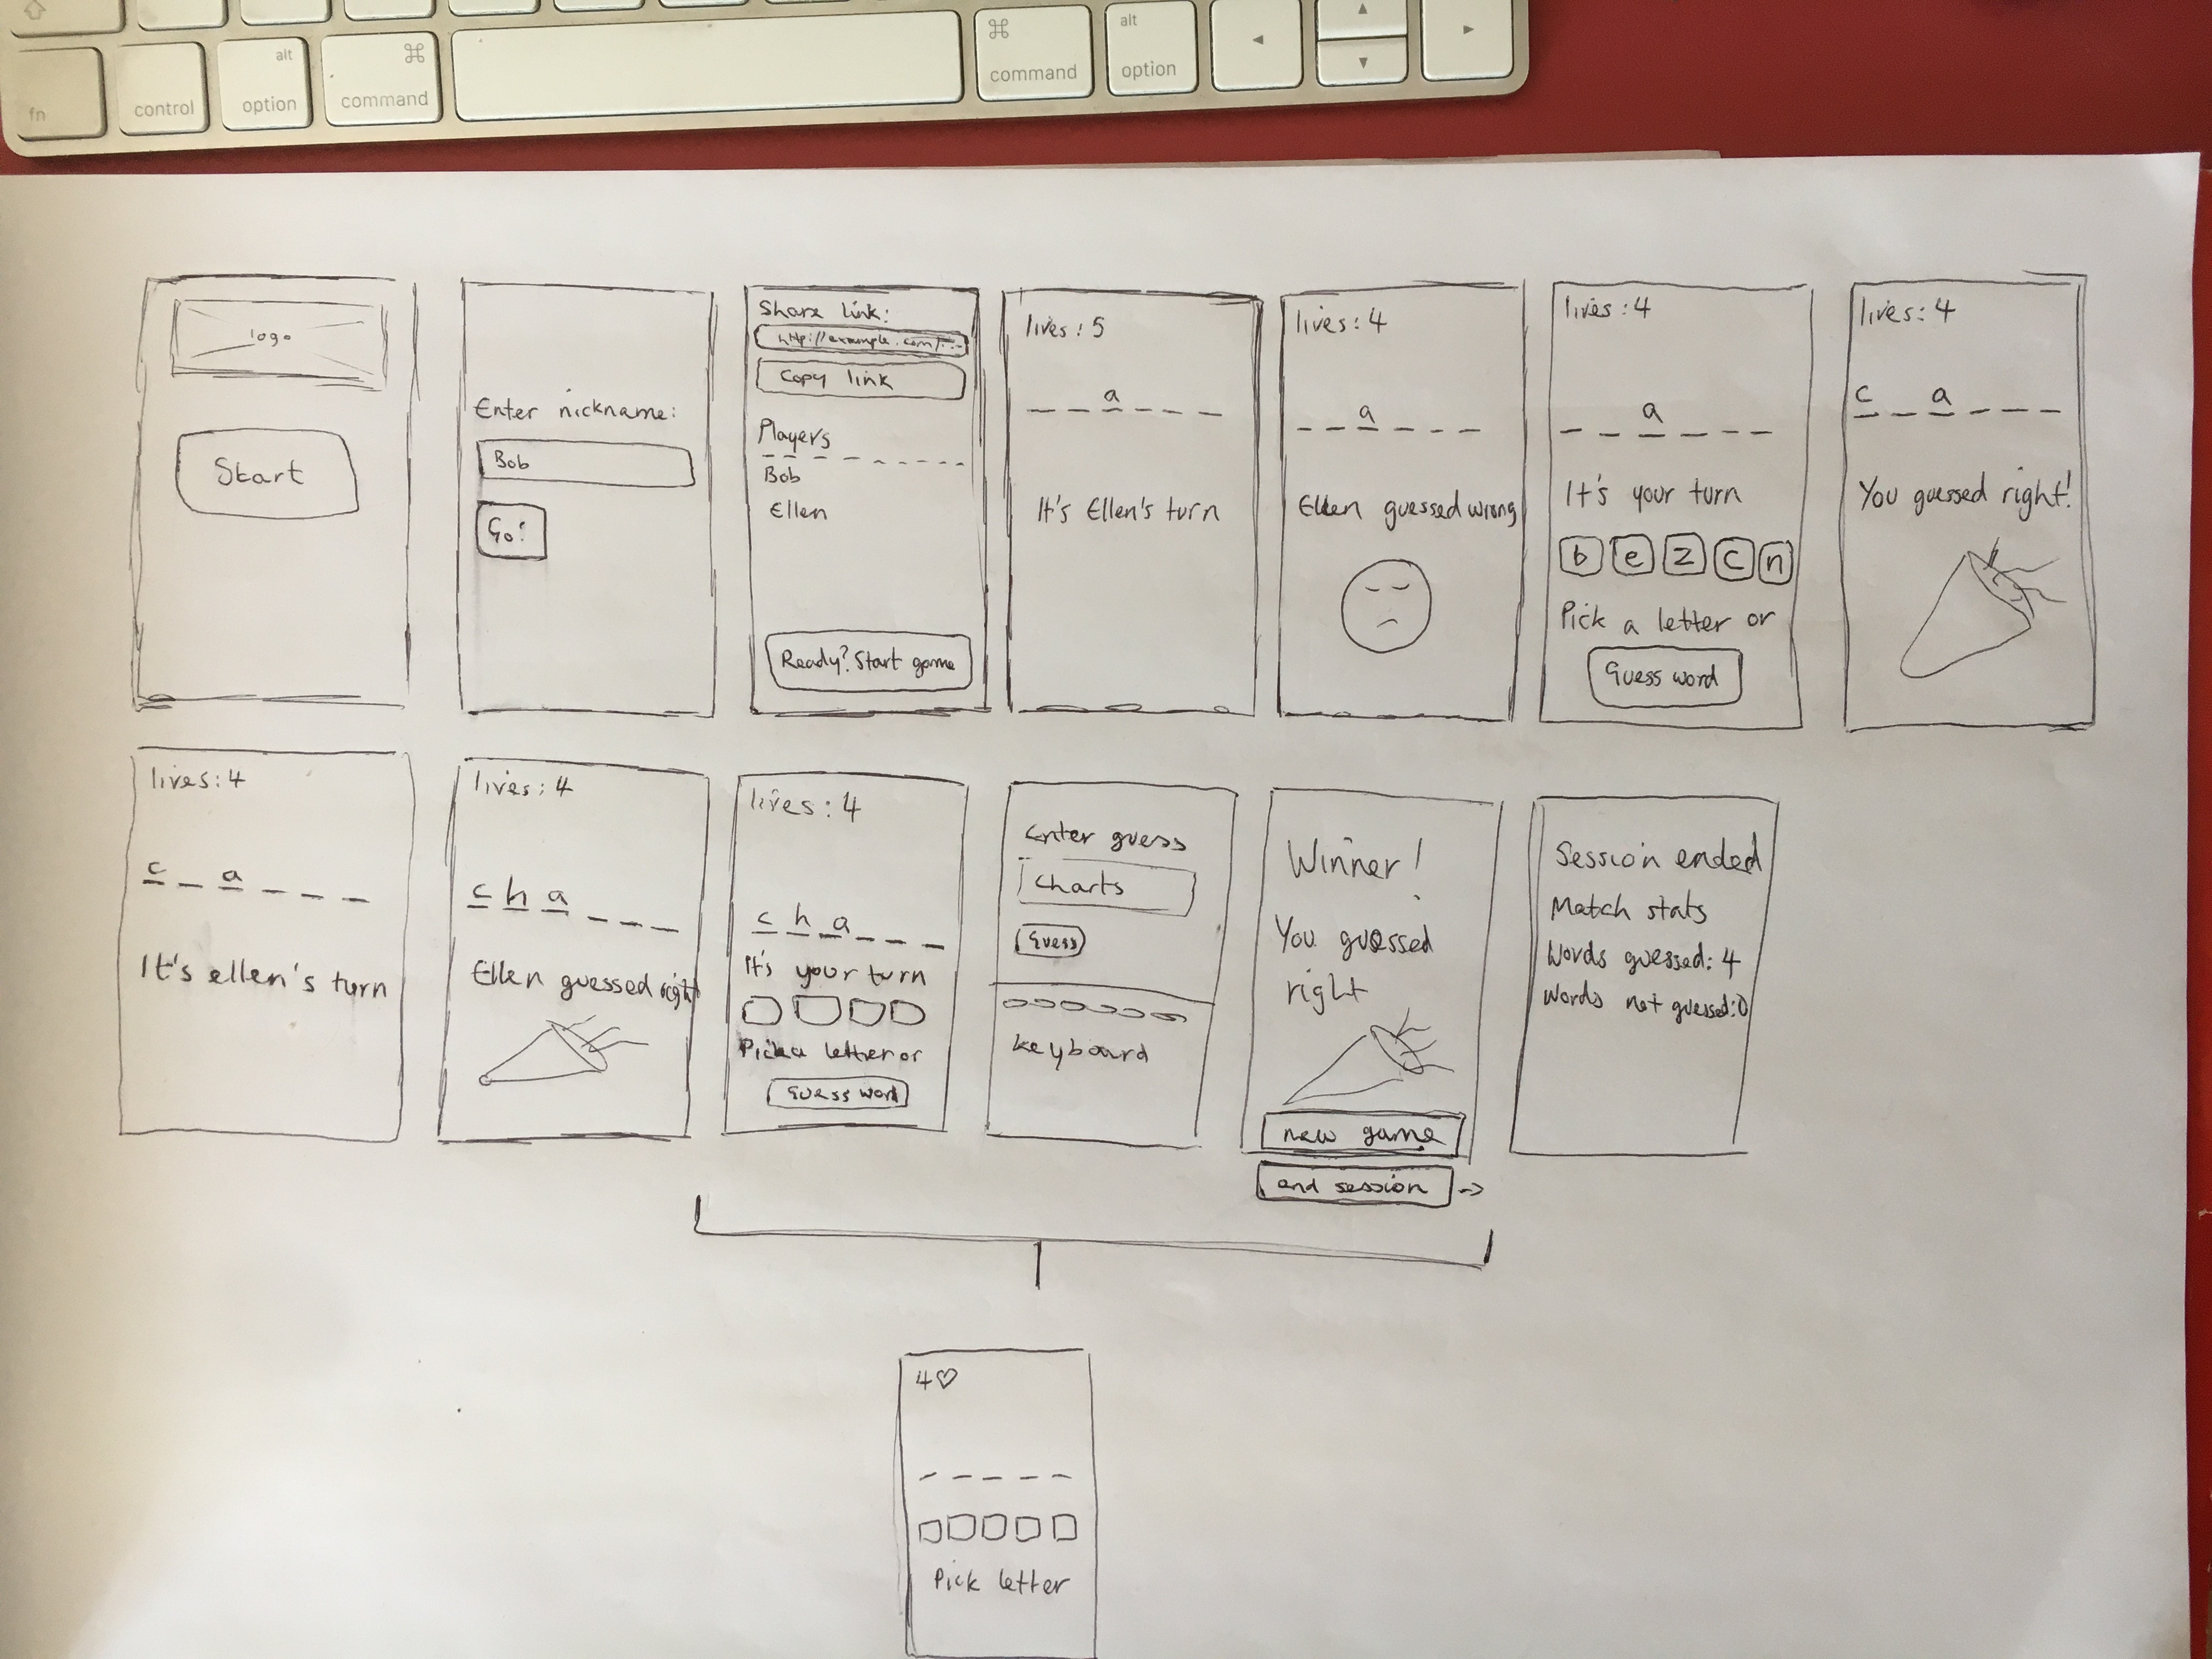 fn
control
alt
option
⌘
command
⌘
command
alt
option
logo
Start
Enter nickname:
Bob
Go!
Share link:
http://example.com/...
Copy link
Players
Bob
Ellen
Ready? Start game
lives: 5
_ _ a _ _ _
It's Ellen's turn
lives: 4
_ _ a _ _ _
Ellen guessed wrong
lives: 4
_ _ a _ _ _
It's your turn
b e z c n
Pick a letter or
Guess word
lives: 4
c _ a _ _ _
You guessed right!
lives: 4
c _ a _ _ _
It's ellen's turn
lives: 4
c h a _ _ _
Ellen guessed right
lives: 4
c h a _ _ _
It's your turn
Pick a letter or
Guess word
Enter guess
Charts
Guess
keyboard
Winner!
You guessed
right
new game
end session ->
Session ended
Match stats
Words guessed: 4
Words not guessed: 0
4♡
_ _ _ _ _
Pick letter